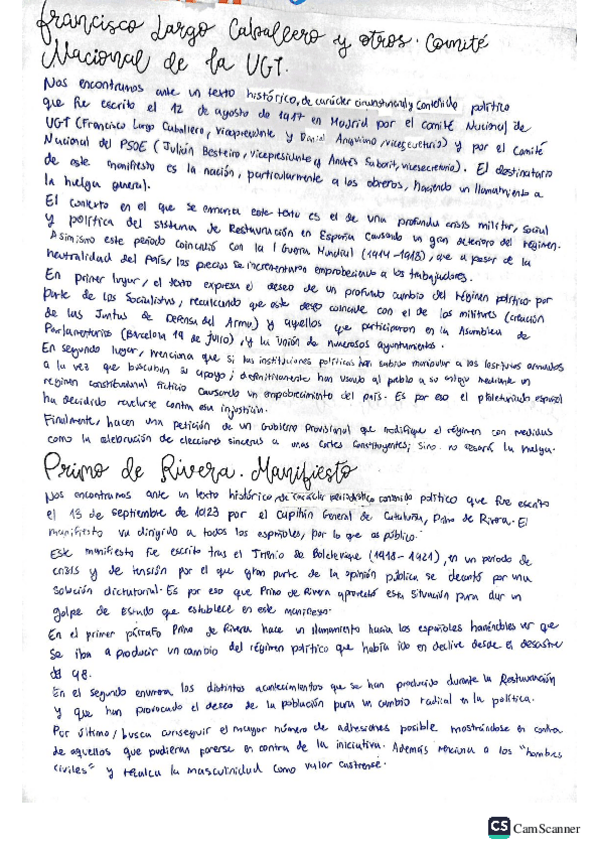 Francisco Largo Caballero y otros. Comité
Nacional de la UGT.
Nos encontramos ante un texto histórico, de carácter circunstancial y contenido político
que fue escrito el 12 de agosto de 1917 en Madrid por el Comité Nacional de
UGT (Francisco Largo Caballero, vicepresidente y Daniel Anguiano, vicesecretario) y por el Comité
Nacional del PSOE (Julián Besteiro, vicepresidente y Andrés Saborit, vicesecretario). El destinatario
de este manifiesto es la nación, particularmente a los obreros, haciendo un llamamiento a
la huelga general.
El contexto en el que se enmarca este texto es el de una profunda crisis militar, social
y política del sistema de Restauración en España causando un gran deterioro del régimen.
Asimismo este período coincidió con la I Guerra Mundial (1914-1918), que a pesar de la
neutralidad del país, los precios se incrementaron empobreciendo a los trabajadores.
En primer lugar, el texto expresa el deseo de un profundo cambio del régimen político por
parte de los Socialistas, recalcando que este deseo coincide con el de los militares (creación
de las Juntas de Defensa del Arma) y aquellos que participaron en la Asamblea de
Parlamentarios (Barcelona 19 de julio), y la unión de numerosos ayuntamientos.
En segundo lugar, menciona que si las instituciones políticas han sabido manipular a los
a la vez que buscaban su apoyo; definitivamente han usado al pueblo a su antojo mediante un
régimen constitucional ficticio causando un empobrecimiento del país. Es por eso el proletariado español
ha decidido revelarse contra esa injusticia.
Finalmente, hacen una petición de un Gobierno Provisional que modifique el régimen con medidas
como la celebración de elecciones sinceras a unas Cortes Constituyentes; sino no cesará la huelga.
Primo de Rivera. Manifiesto
Nos encontramos ante un texto histórico, de carácter contenido político que fue escrito
el 13 de septiembre de 1923 por el Capitán General de Cataluña, Primo de Rivera. El
manifiesto va dirigido a todos los españoles, por lo que es público.
Este manifiesto fue escrito tras el Trienio de Bolchevique (1918-1921), en un período de
crisis y de tensión por el que gran parte de la opinión pública se decantó por una
solución dictatorial. Es por eso que Primo de Rivera aprovechó esta situación para dar un
golpe de Estado que establece en este manifiesto.
En el primer párrafo Primo de Rivera hace un llamamiento hacia los españoles haciéndoles ver que
se iba a producir un cambio del régimen político que había ido en declive desde el desastre
del 98.
En el segundo enumera los distintos acontecimientos que se han producido durante la Restauración
y que han provocado el deseo de la población para un cambio radical en la política.
Por último, busca conseguir el mayor número de adhesiones posible mostrándose en contra
de aquellos que pudieran ponerse en contra de la iniciativa. Además menciona a los "hombres
civiles" y recalca la masculinidad como valor castrense.
CS CamScanner